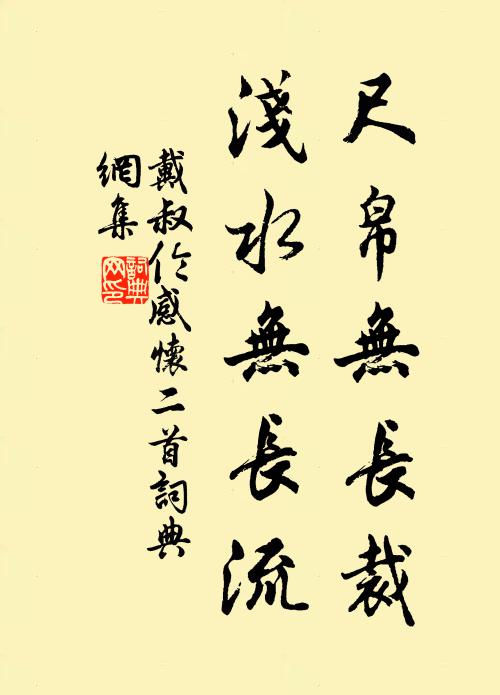 尺帛無長裁
淺水無長流
戴叔伦感懷二首詞典
網集
詞典網印